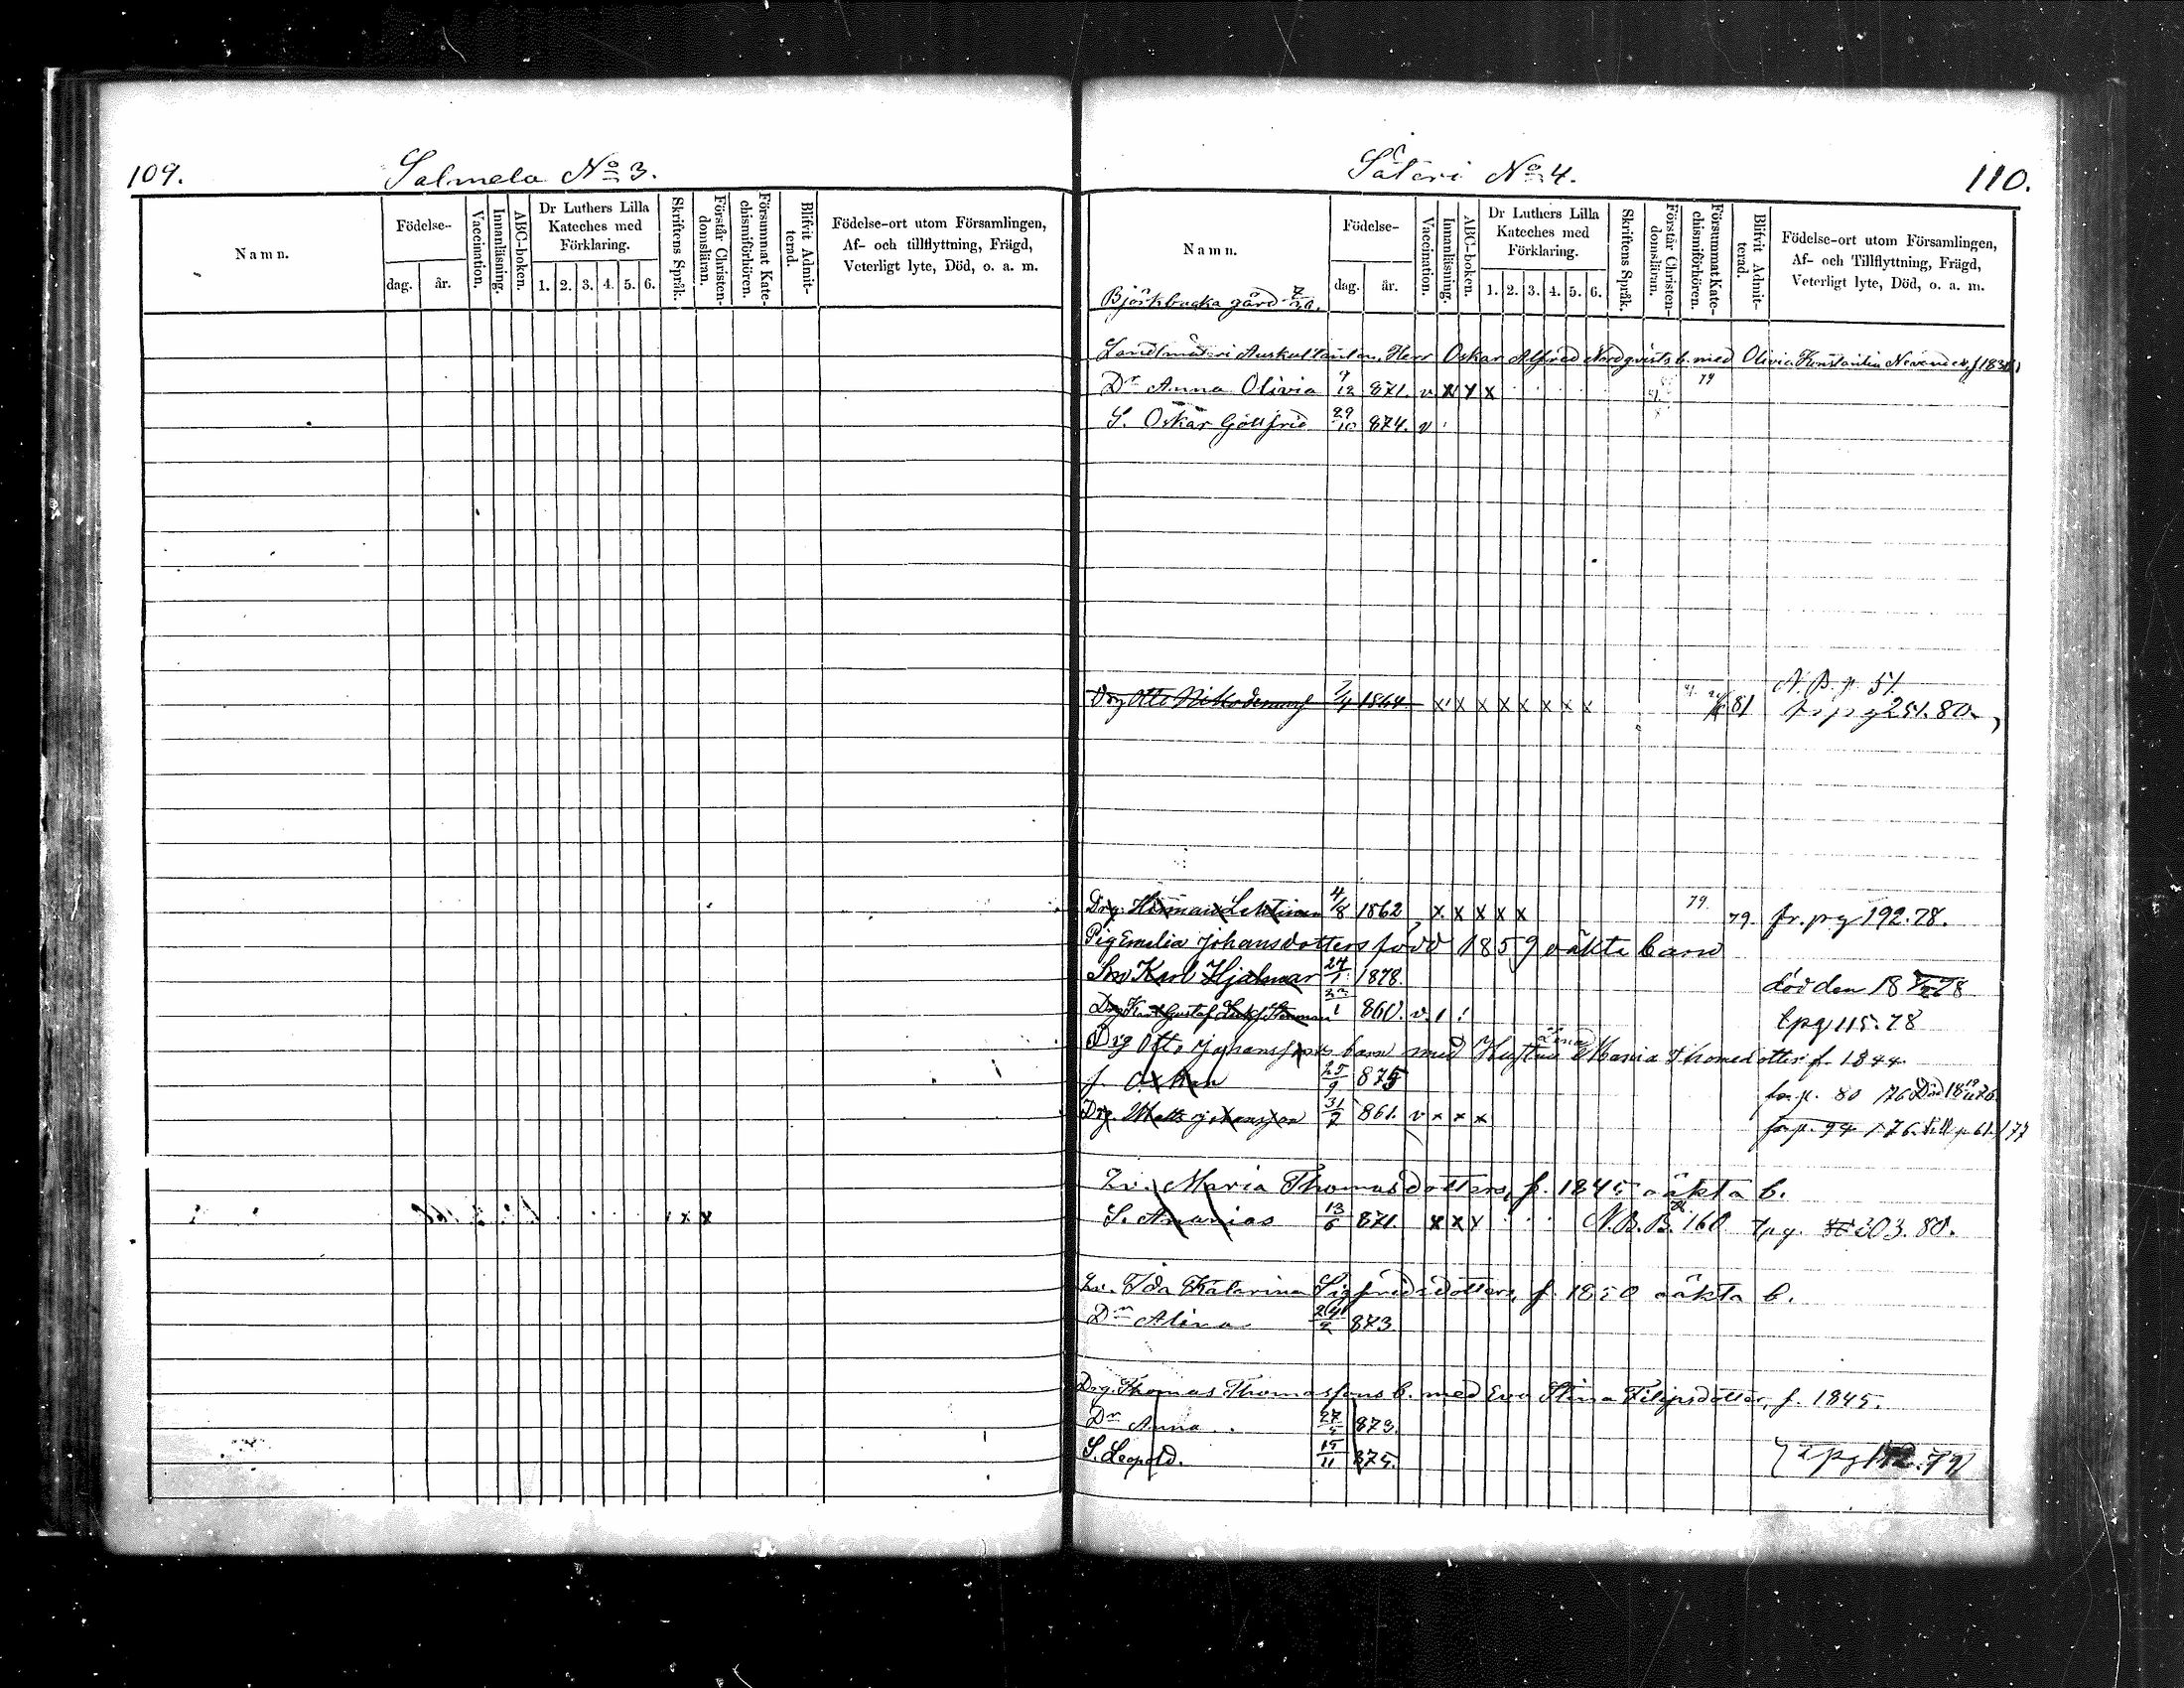 109.
Salmela No 3.
Namn.
Födelse-
dag.
år.
Vaccination.
Innanläsning.
ABC-boken.
Dr Luthers Lilla
Kateches med
Förklaring.
1. 2. 3. 4. 5. 6.
Skriftens Språk.
Förstår Christen-
domsläran.
Försummat Kate-
chismiförhören.
Blifvit Admit-
terad.
Födelse-ort utom Församlingen,
Af- och tillflyttning, Frägd,
Veterligt lyte, Död, o. a. m.
x x
Säteri No 4.
110.
Namn.
Björkbacka gård
Födelse-
dag.
år.
Vaccination.
Innanläsning.
ABC-boken.
Dr Luthers Lilla
Kateches med
Förklaring.
1. 2. 3. 4. 5. 6.
Skriftens Språk.
Förstår Christen-
domsläran.
Försummat Kate-
chismiförhören.
Blifvit Admit-
terad.
Födelse-ort utom Församlingen,
Af- och Tillflyttning, Frägd,
Veterligt lyte, Död, o. a. m.
Landtmäteri Auskultanten, Herr Oskar Alfred Nordqvists b. med Olivia
Dr Anna Olivia 9/12 871. v x x x 79
S. Oskar Gottfrid 29/10 874. v
Drg Otto 1864 x x x x x x x x 81 N. B. p 51. 251.80
Drg. Herman Lehtinen 4/8 1862 x x x x x 79. 79. fr. pg 192.78.
Pig Emilia Johansdotters född 1859 oäkta barn
Son Karl Hjalmar 24/1 1878. död den 18
Drg Karl Gustaf 860. v. tpg 115.78
Drg Otto Johanssons barn med Maria Thomedotter f. 1844.
f. Oskar 25/9 875 fr. p. 80 /76 Död 18
Drg. Matts Johansson 31/7 861. v x x x fr p. 94 /76. till p. 61. /77
In. Maria Thomasdotters, f. 1845 oäkta b.
S. Ananias 13/6 871. x x x N. B. B. 160 tpg. 303. 80.
In. Ida Katarina Sigfridsdotters, f. 1850 oäkta b.
Dr Alina 24/2 873.
Drg. Thomas Thomassons b. med Eva Stina Filipsdotter, f. 1845.
Dr Anna 873.
S. Leopold. 15/11 875. tpg 79